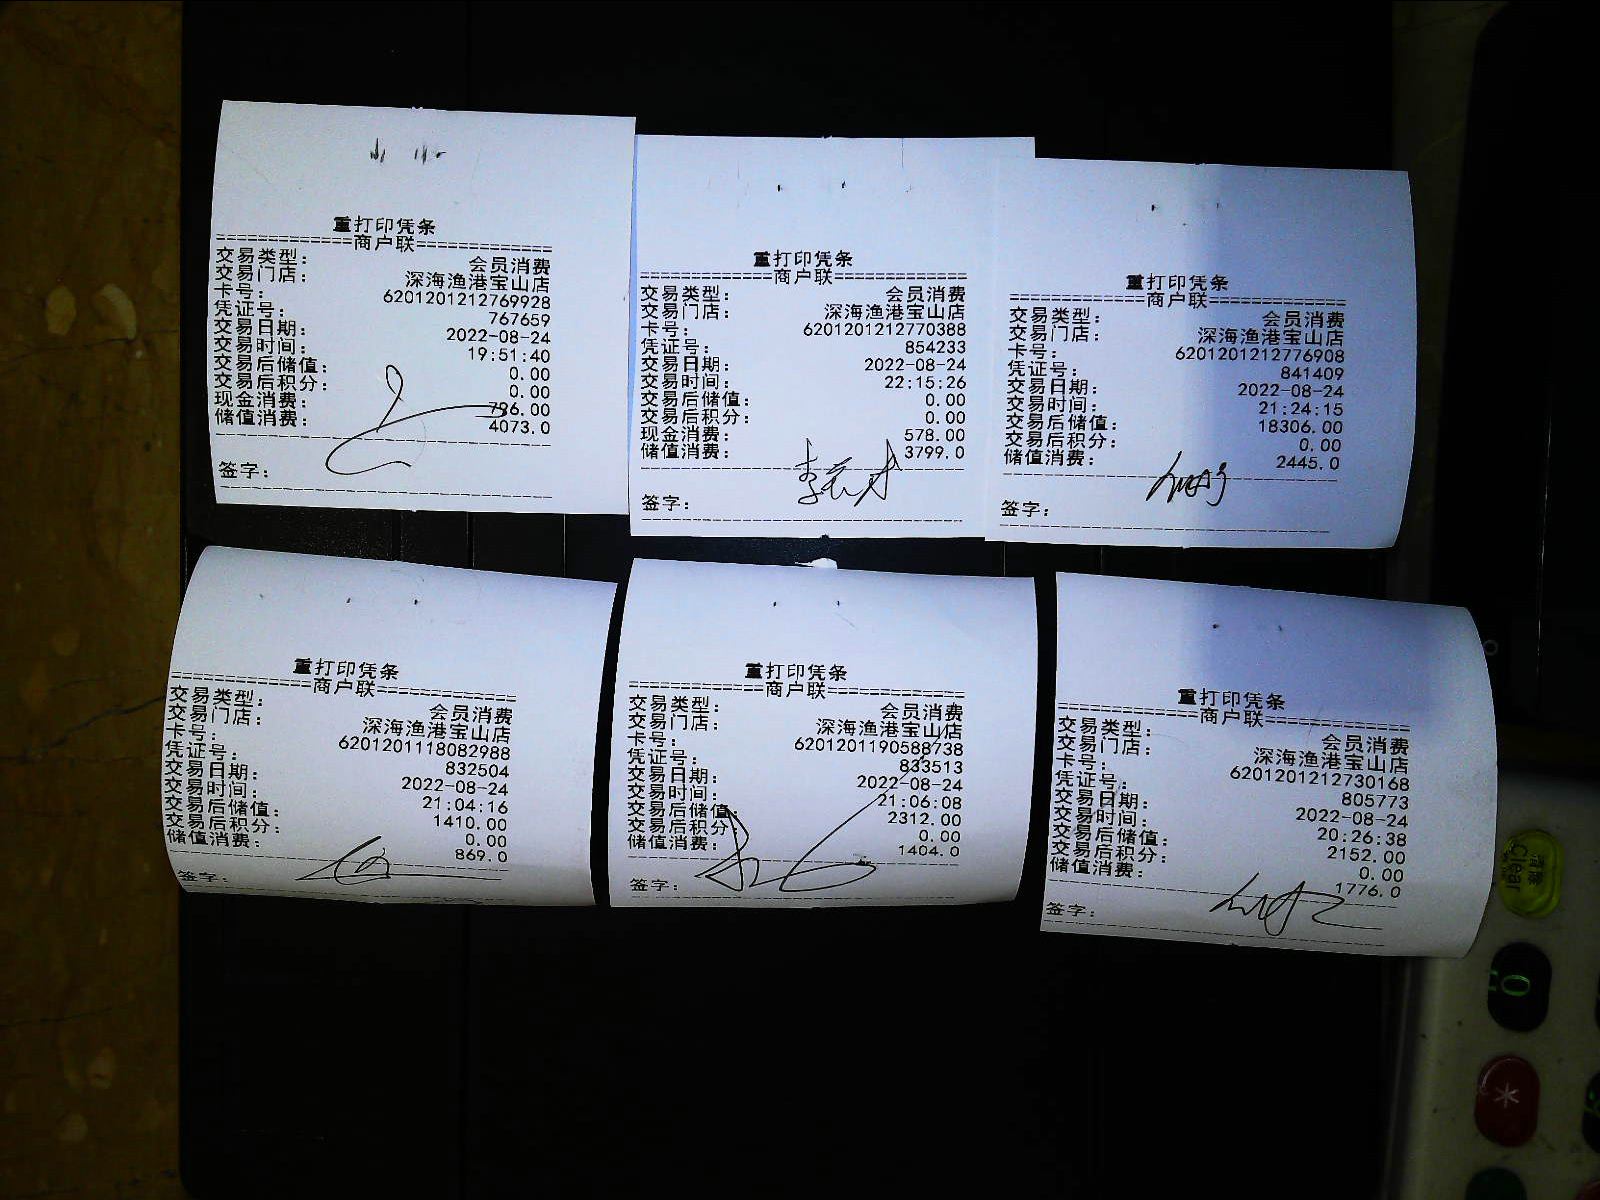 重打印凭条
==============商户联==============
交易类型： 会员消费
交易门店： 深海渔港宝山店
卡号： 6201201212769928
凭证号： 767659
交易日期： 2022-08-24
交易时间： 19:51:40
交易后储值： 0.00
交易后积分： 0.00
现金消费： 796.00
储值消费： 4073.0
签字：
重打印凭条
==============商户联==============
交易类型： 会员消费
交易门店： 深海渔港宝山店
卡号： 6201201212770388
凭证号： 854233
交易日期： 2022-08-24
交易时间： 22:15:26
交易后储值： 0.00
交易后积分： 0.00
现金消费： 578.00
储值消费： 3799.0
签字：
重打印凭条
==============商户联==============
交易类型： 会员消费
交易门店： 深海渔港宝山店
卡号： 6201201212776908
凭证号： 841409
交易日期： 2022-08-24
交易时间： 21:24:15
交易后储值： 18306.00
交易后积分： 0.00
储值消费： 2445.0
签字：
重打印凭条
==============商户联==============
交易类型： 会员消费
交易门店： 深海渔港宝山店
卡号： 6201201118082988
凭证号： 832504
交易日期： 2022-08-24
交易时间： 21:04:16
交易后储值： 1410.00
交易后积分： 0.00
储值消费： 869.0
签字：
重打印凭条
==============商户联==============
交易类型： 会员消费
交易门店： 深海渔港宝山店
卡号： 6201201190588738
凭证号： 833513
交易日期： 2022-08-24
交易时间： 21:06:08
交易后储值： 2312.00
交易后积分： 0.00
储值消费： 1404.0
签字：
重打印凭条
==============商户联==============
交易类型： 会员消费
交易门店： 深海渔港宝山店
卡号： 6201201212730168
凭证号： 805773
交易日期： 2022-08-24
交易时间： 20:26:38
交易后储值： 2152.00
交易后积分： 0.00
储值消费： 1776.0
签字：
清除
Clear
0
*